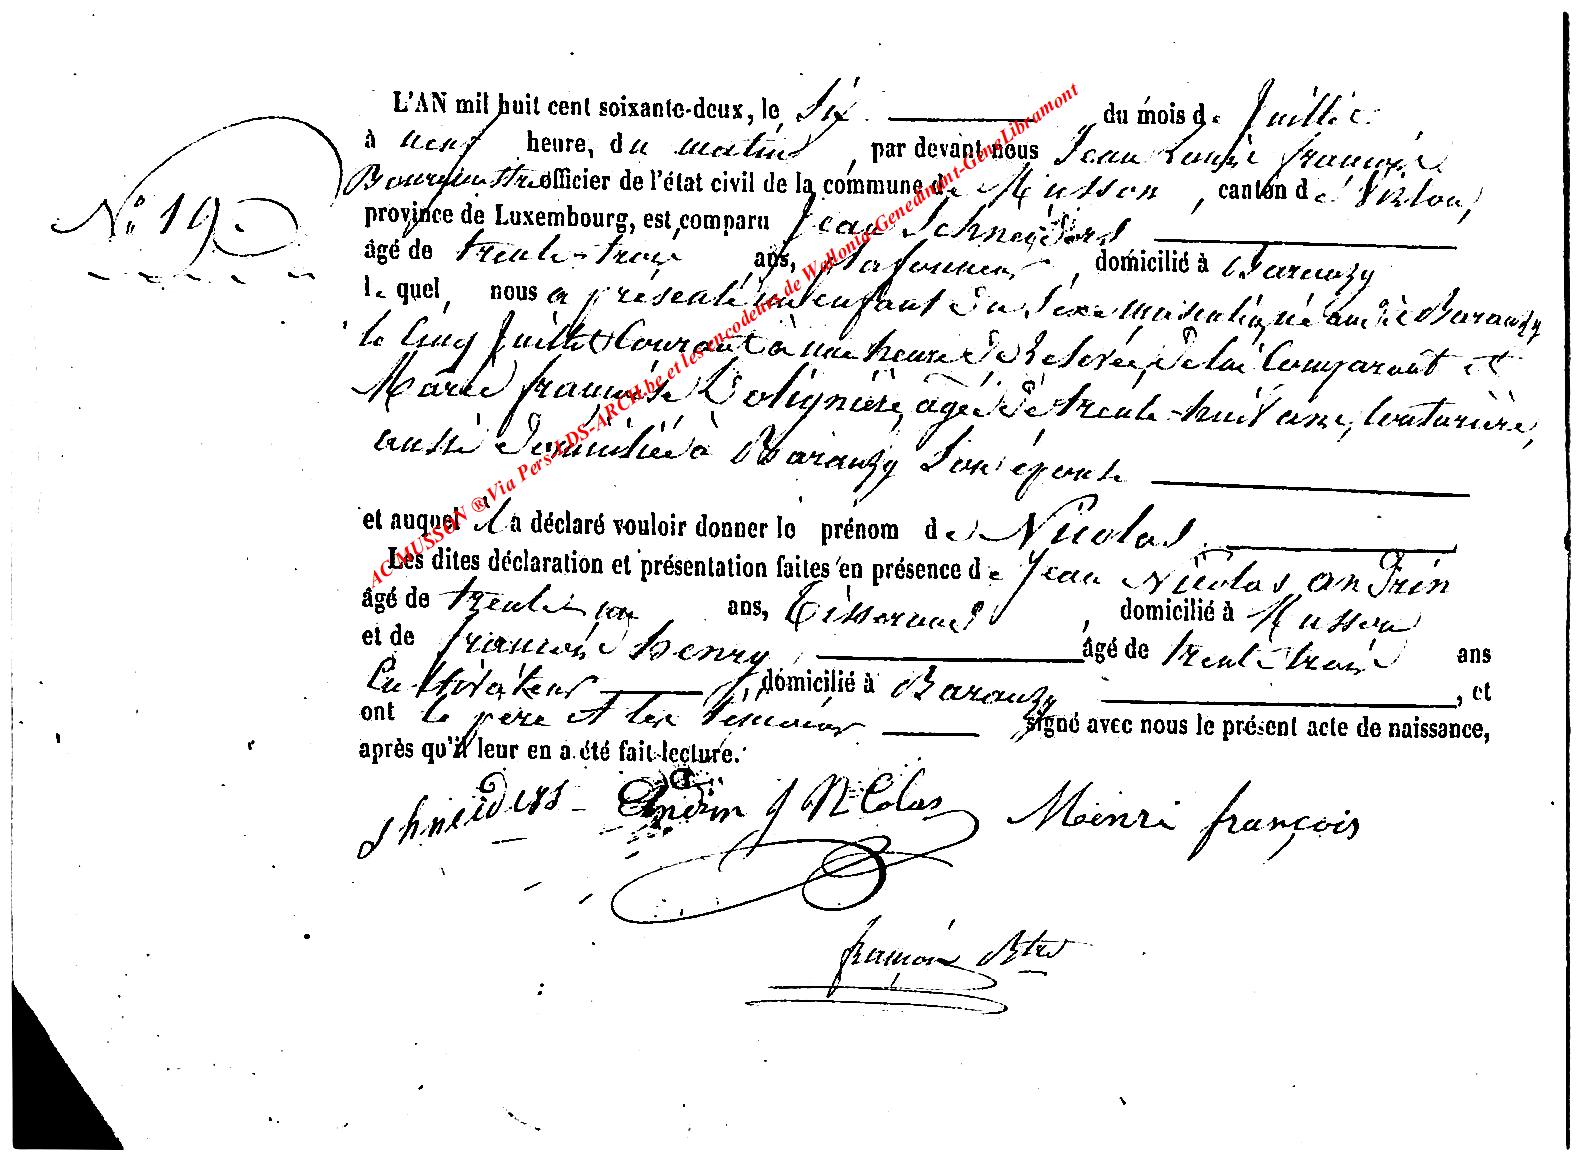 L'AN mil huit cent soixante-deux, le Six du mois de Juillet
à neuf heure, du matin, par devant nous Jean Louis françois
N.° 19.
Bourgmestre officier de l'état civil de la commune de Musson, canton de Virton,
province de Luxembourg, est comparu Jean Schneiders
âgé de trente-trois ans, plafonneur, domicilié à Baranzy
lequel, nous a présenté un enfant du sexe masculin, né audit Baranzy
le Cinq Juillet Courant à une heure de Relevée, de lui Comparant et
Marie françoise agée de trente-huit ans, Couturière,
aussi domiciliée à Baranzy son épouse
et auquel il a déclaré vouloir donner le prénom de Nicolas
Les dites déclaration et présentation faites en présence de Jean Nicolas andrin
âgé de ans, Tisserand, domicilié à Musson
et de françois henry, âgé de trente trois ans
Cultivateur, domicilié à Baranzy, et
ont le père et les témoins signé avec nous le présent acte de naissance,
après qu'il leur en a été fait lecture.
shneiders Andrin J Nicolas Henri françois
françois Btre
AC MUSSON ® Via Pers-LDS-ARCH.be et les encodeurs de Wallonia-Genedinant-GeneLibramont